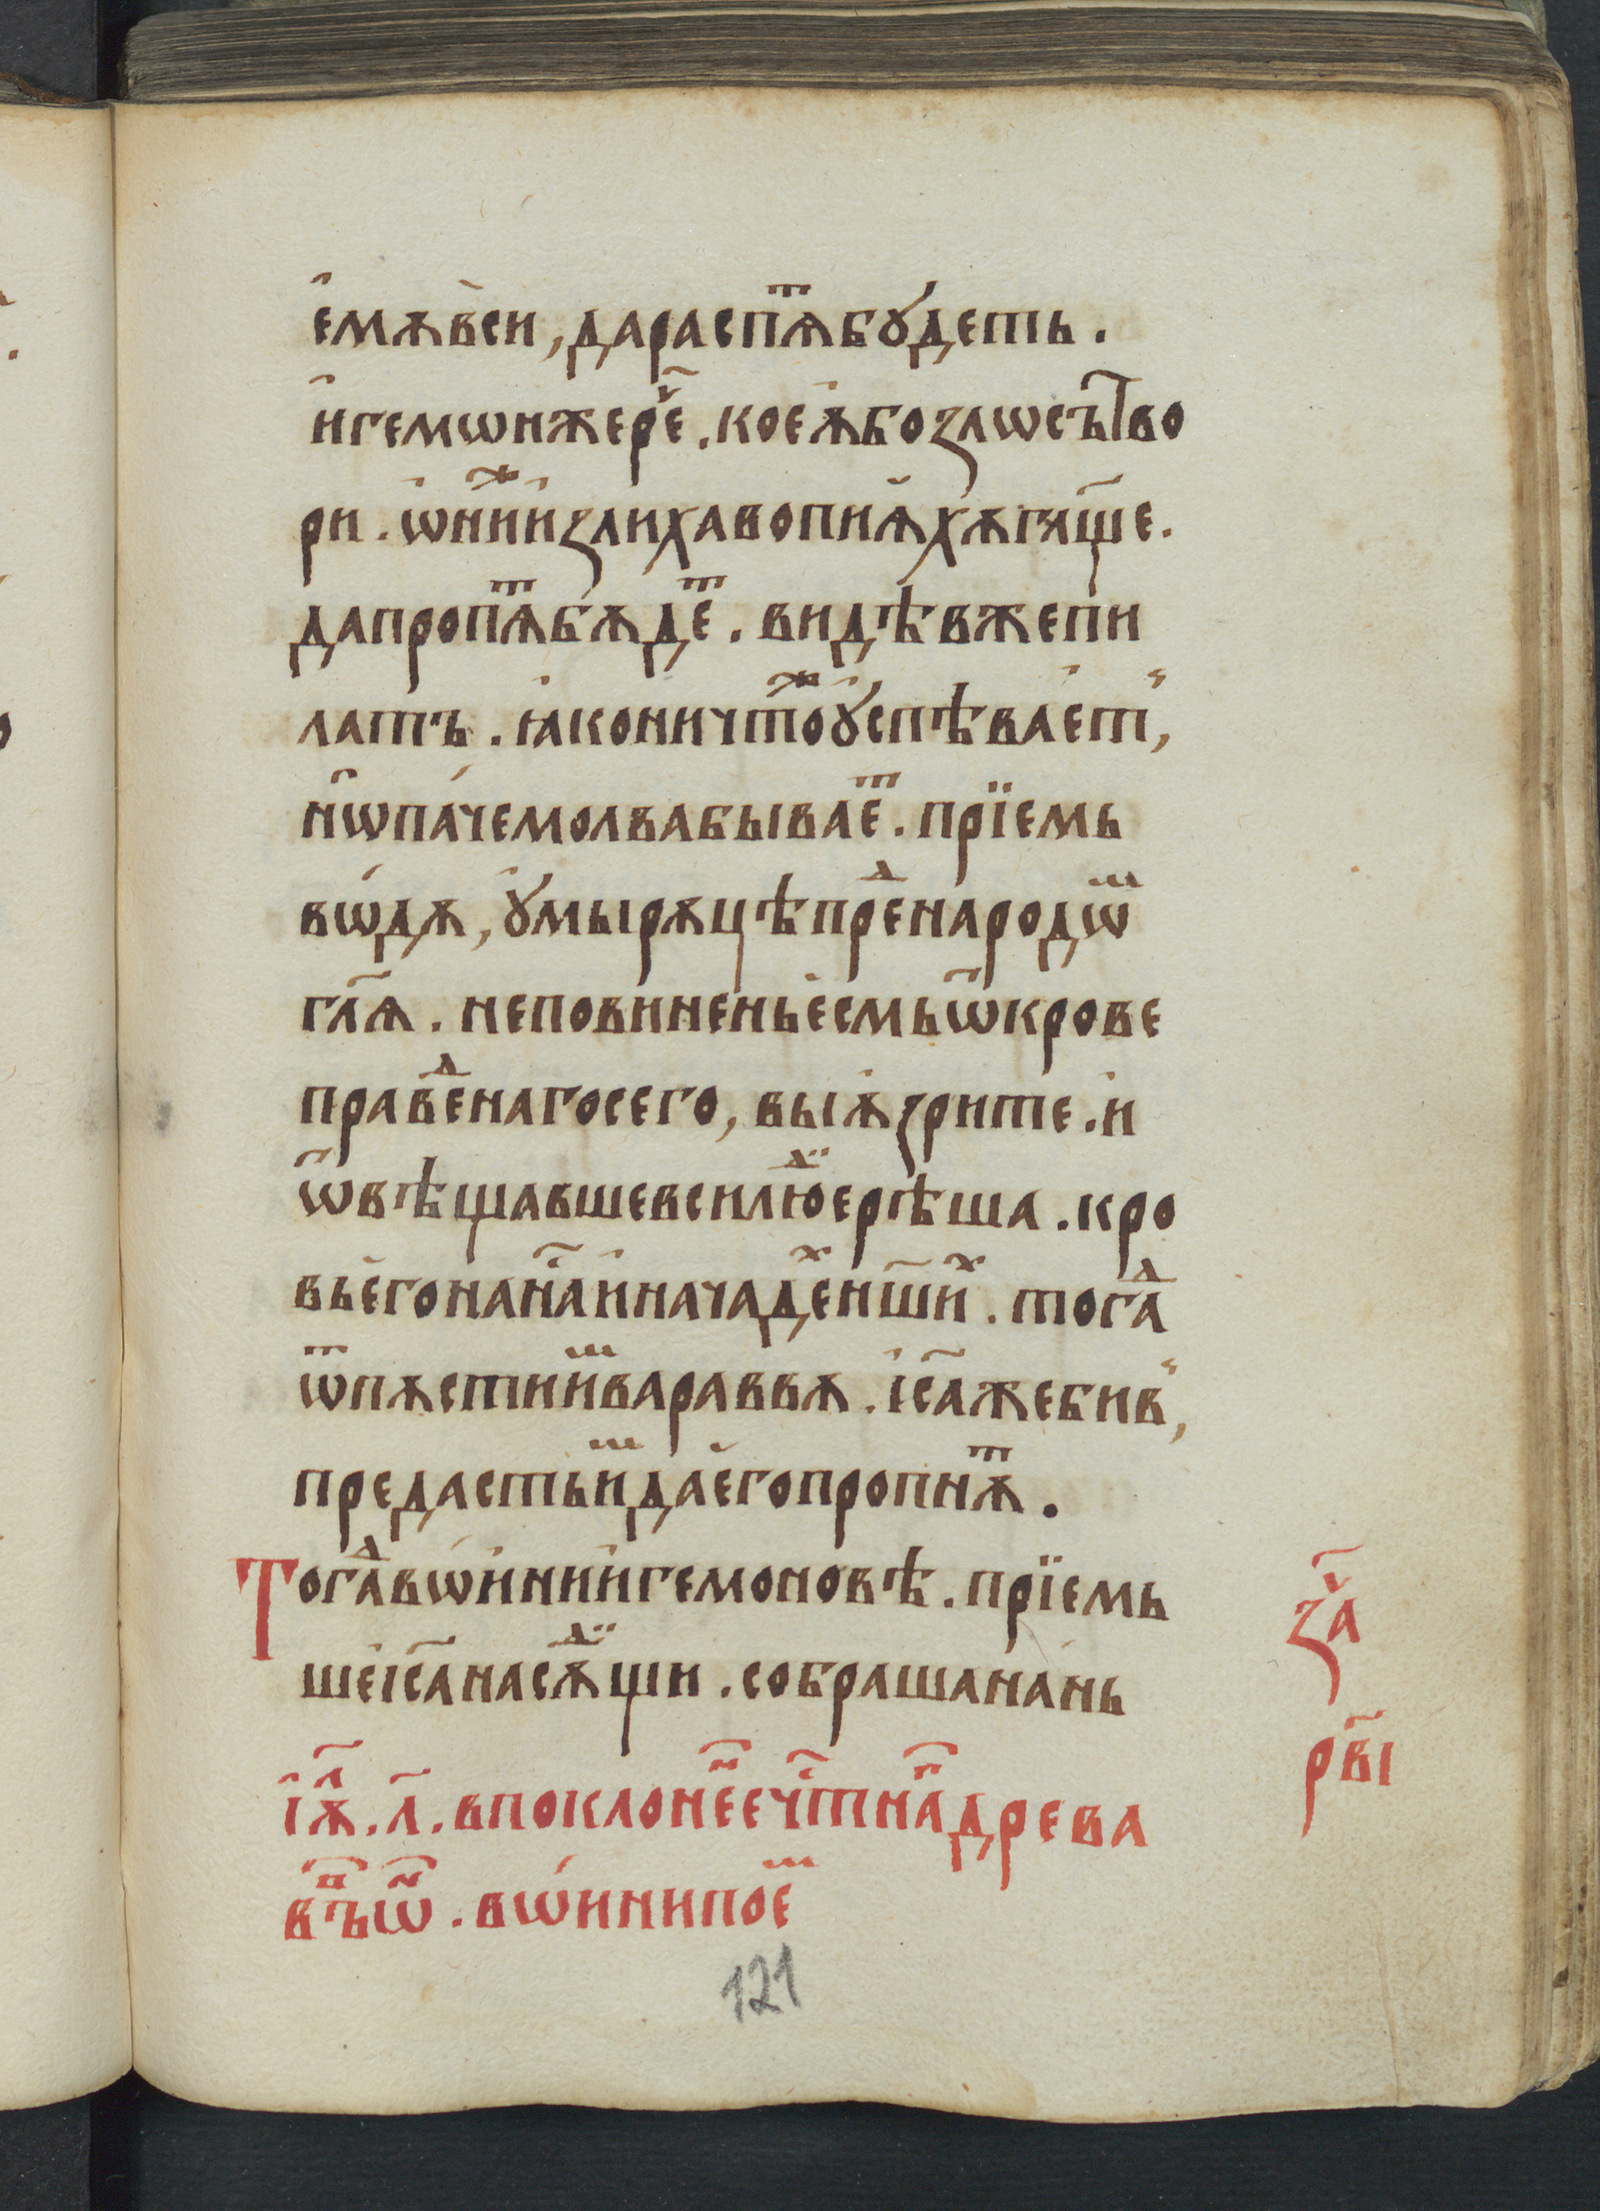 є҆мѫвⷭ҇и, дараспѧⷮбꙋдеть.
и҆гемѡнжереⷱ҇. коеѧ҆бозлѡсъTво
ри. ѡ҆ниⷤи҆злихавопиѧ҆хѫгл҃ще.
дапропѧⷮбѫдеⷮ. видѣвжепи
латъ. ꙗ҆коничтоⷤꙋ҆спѣваетⸯ,
нѡ҆пачемолвабываеⷮ. прїемь
вѡ́дѫ, ꙋ҆мырѫцѣпреⷣнародѡⷨ
гл҃ѧ. неповиненьє҆смьѿкрове
правеⷣнагосего, выѧ҆зрите. и҆
ѿвѣщавшевсилюⷣерѣша. кро
вьє҆гонанаⷭ҇и҆начадеⷯнш҃иⷯ. тогаⷣ
ѿпѫстииⷨвараввѫ. і҆с҃ажебивⸯ,
предастьиⷨдає҆гопропнѫⷮ.
Тогаⷣвѡ́и҆нии҆гемоновѣ. прїемь
шеі҆с҃анасѫⷣщи. собрашанань
і҆ѧⷧ҇. л҃. впоклонеⷩ҇ечⷭ҇тнаⷢ҇древа
въⷪ҇ѡⷩ҇. вѡ́инипоеⷨ
заⷱ҇
рв҃і
121